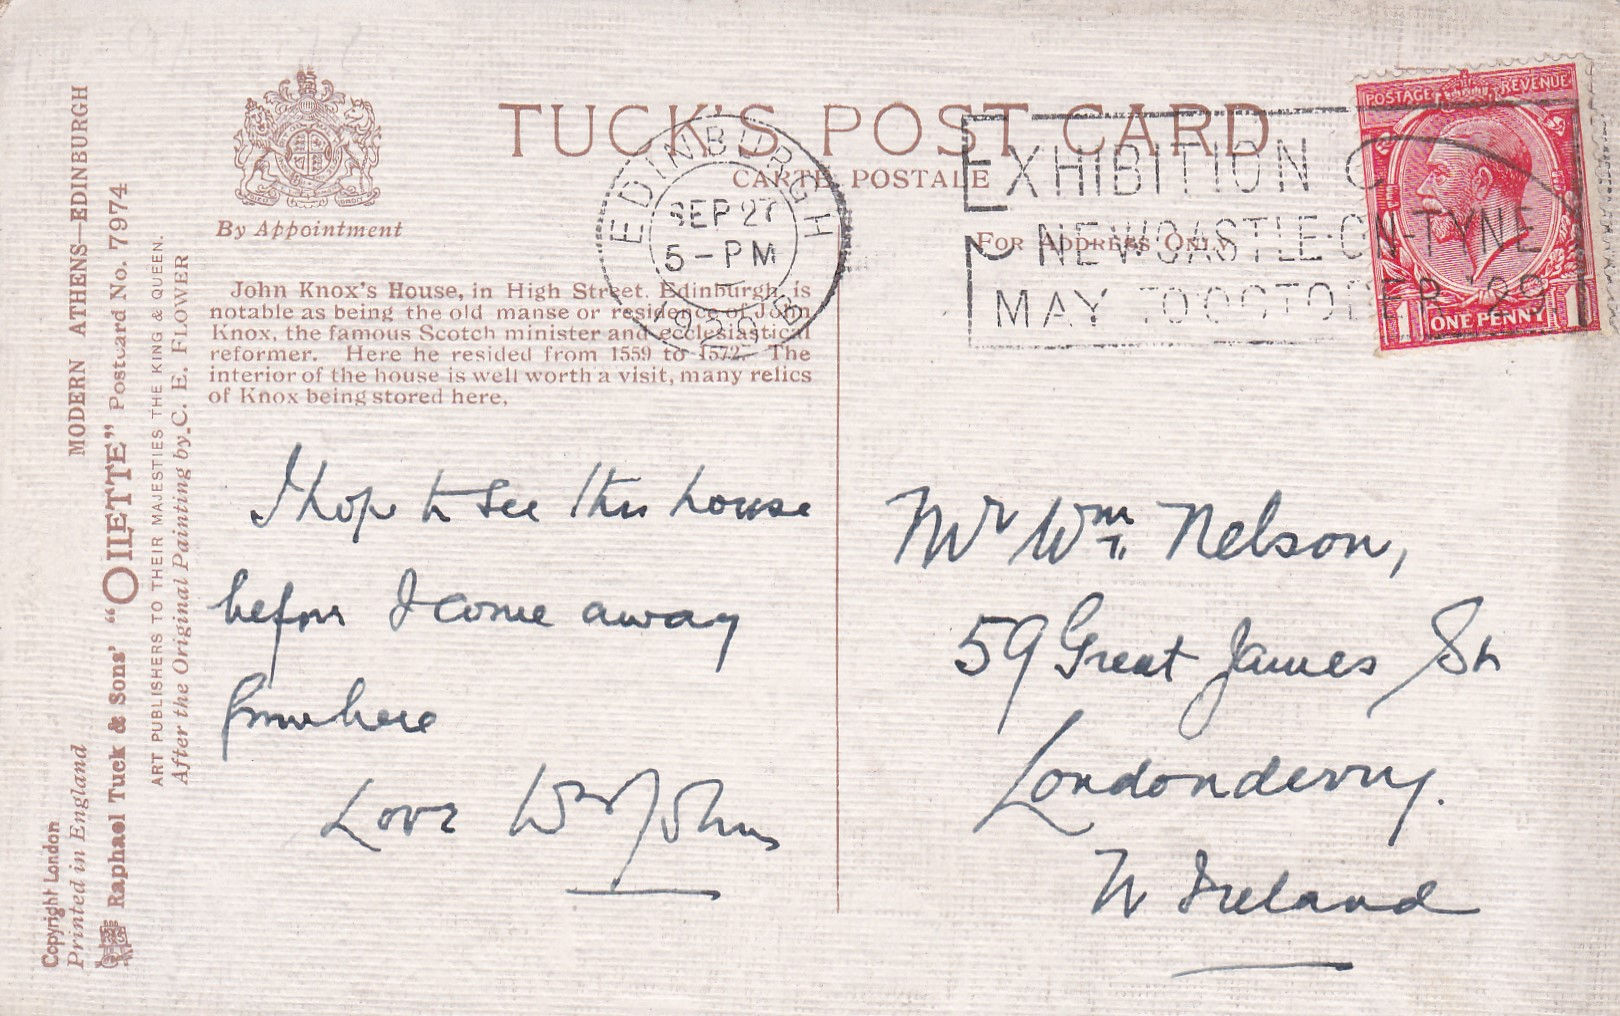 TUCK'S POST CARD
CARTE POSTALE
By Appointment
FOR ADDRESS ONLY
John Knox's House, in High Street, Edinburgh, is
notable as being the old manse or residence of John
Knox, the famous Scotch minister and ecclesiastical
reformer. Here he resided from 1559 to 1572. The
interior of the house is well worth a visit, many relics
of Knox being stored here.
EDINBURGH
SEP 27
5 - PM
EXHIBITION
NEWCASTLE-ON-TYNE
MAY TO OCTOBER 1929
POSTAGE REVENUE
1 ONE PENNY 1
I hope to see this house
before I come away
from here
Love Wm John
Mr Wm Nelson,
59 Great James St
Londonderry.
N Ireland
MODERN ATHENS—EDINBURGH
Raphael Tuck & Sons' "OILETTE" Postcard No. 7974
ART PUBLISHERS TO THEIR MAJESTIES THE KING & QUEEN.
After the Original Painting by C. E. FLOWER
Copyright London
Printed in England